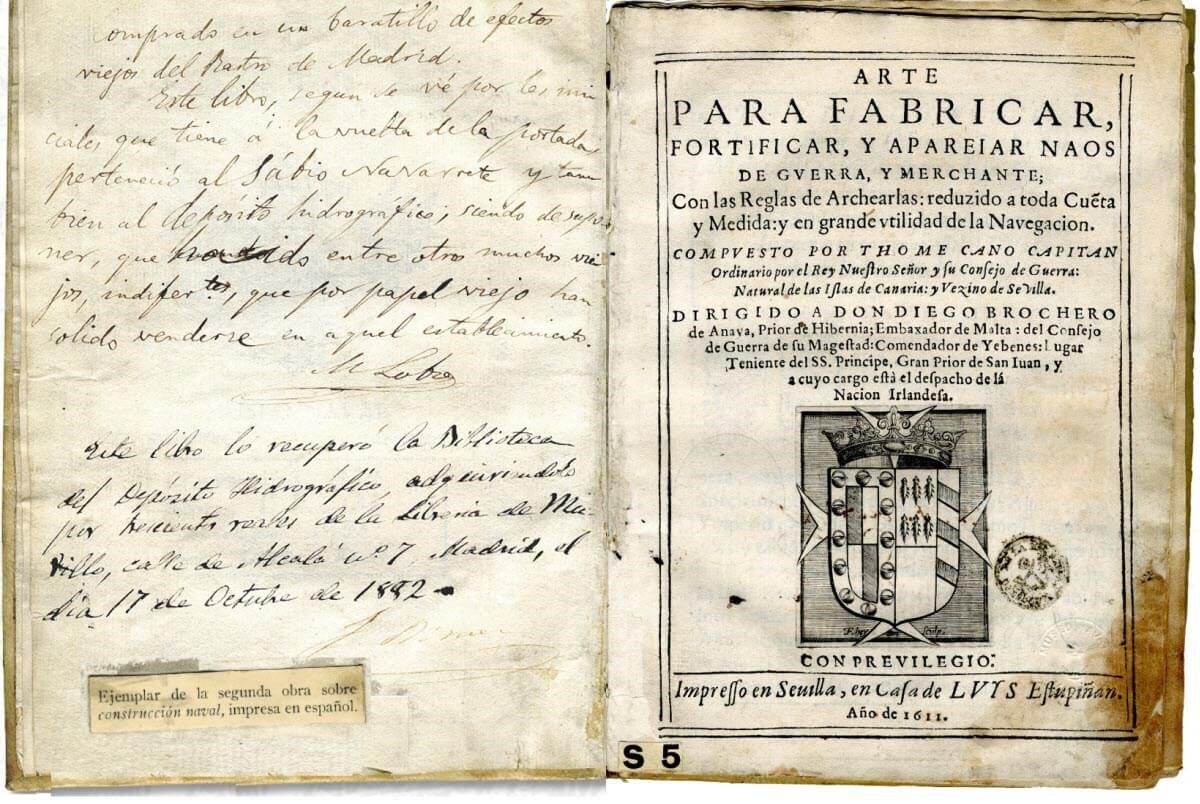 comprado en un baratillo de efectos
viejos del Rastro de Madrid.
Este libro, segun se vé por las ini
ciales que tiene á la vuelta de la portada
perteneció al Sábio Navarrete y tam
bien al depósito hidrográfico; siendo de supo
ner, que entre otros muchos vie
jos, indifer.tes, que por papel viejo han
solido venderse en aquel establecimiento.
M Lobo
Este libro lo recuperó la Biblioteca
del Depósito Hidrográfico, adquiriendolo
por trescients reales de la Libreria de Mu-
rillo, calle de Alcalá nº 7, Madrid, el
dia 17 de Octubre de 1882
Ejemplar de la segunda obra sobre
construcción naval, impresa en español.
ARTE
PARA FABRICAR,
FORTIFICAR, Y APAREIAR NAOS
DE GVERRA, Y MERCHANTE;
Con las Reglas de Archearlas: reduzido a toda Cuẽta
y Medida: y en grande vtilidad de la Navegacion.
COMPVESTO POR THOME CANO CAPITAN
Ordinario por el Rey Nuestro Señor y su Consejo de Guerra:
Natural de las Islas de Canaria: y Vezino de Sevilla.
DIRIGIDO A DON DIEGO BROCHERO
de Anava, Prior de Hibernia; Embaxador de Malta: del Consejo
de Guerra de su Magestad: Comendador de Yebenes: Lugar
Teniente del SS. Principe, Gran Prior de San Iuan, y
a cuyo cargo està el despacho de la
Nacion Irlandesa.
CON PREVILEGIO.
Impresso en Seuilla, en Casa de LVYS Estupiñan.
Año de 1611.
S 5